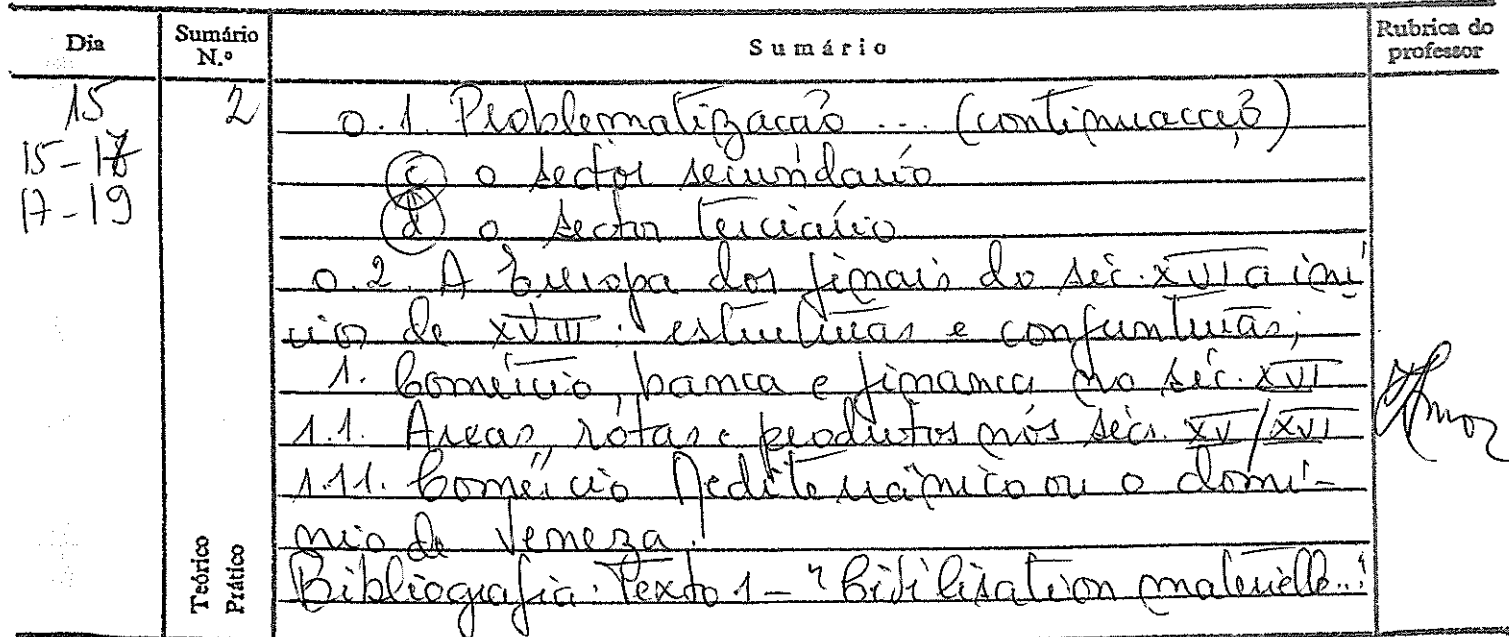 Dia
Sumário N.º
Sumário
Rubrica do professor
15
2
15-17
17-19
0.1. Problematização ... (continuação)
c) o sector secundário
d) o sector terciário
0.2. A Europa dos finais do séc. XVI a iní
cios de XVIII: estruturas e conjunturas;
1. Comércio, banca e finança no séc. XVI
1.1. Áreas, rotas e produtos nos sécs. XV/XVI
1.11. Comércio Mediterrânico ou o domí-
nio de Veneza.
Bibliografia: Texto 1 - "Civilisation matérielle..."
Teórico
Prático